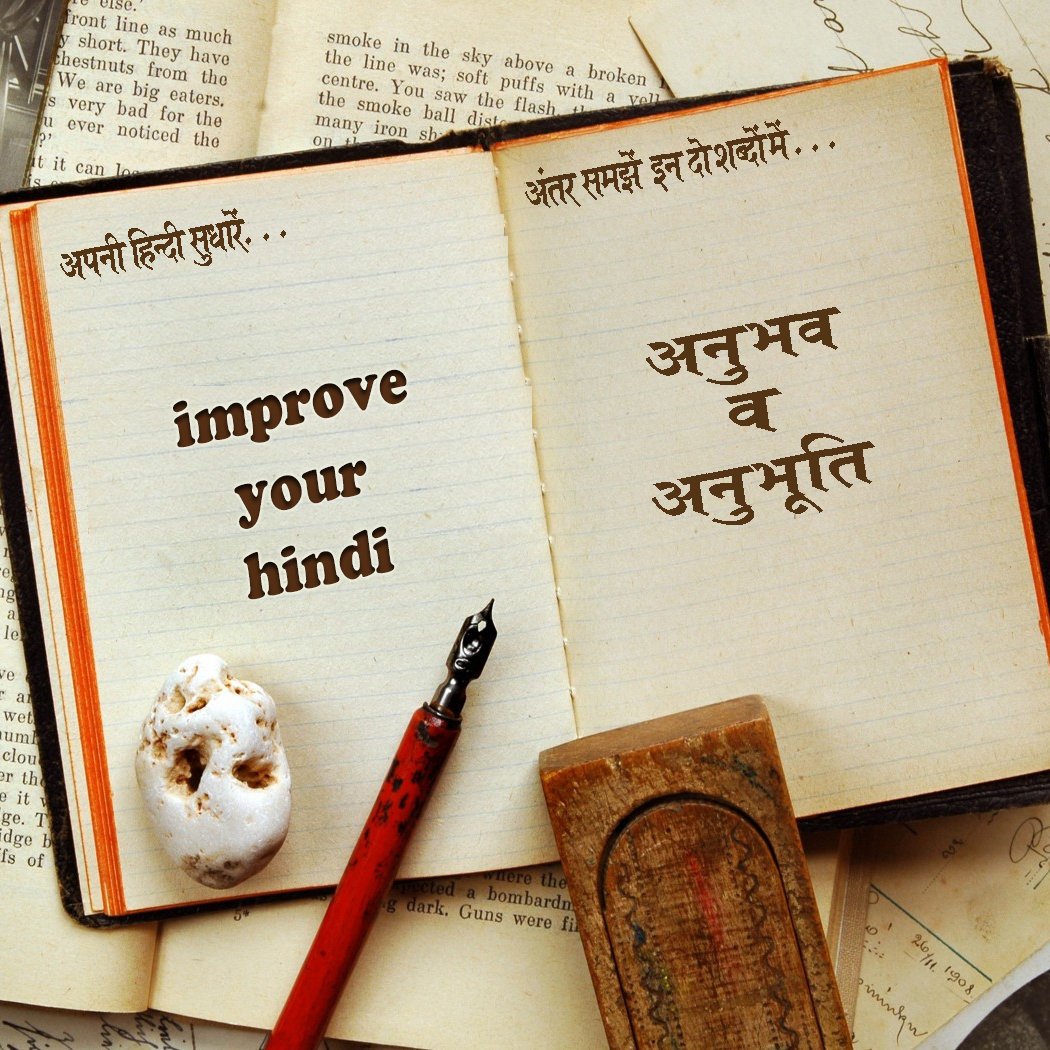 re else.'
front line as much
y short. They have
chestnuts from the
We are big eaters.
s very bad for the
u ever noticed the
?'
smoke in the sky above a broken
the line was; soft puffs with a yell
centre. You saw the flash,
the smoke ball
many iron
on
अपनी हिन्दी सुधारें. . .
improve
your
hindi
अंतर समझें इन दो शब्दों में . . .
अनुभव
व
अनुभूति
where the
a bombardm
g dark. Guns were fi
26/11. 1908.